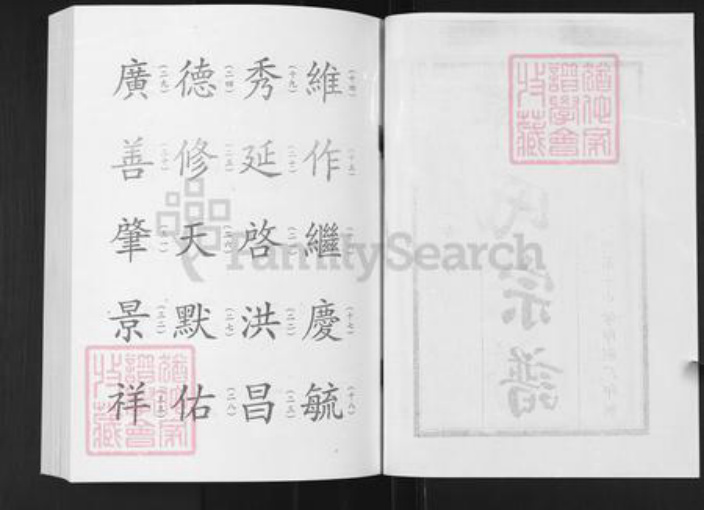 維(十四)作(十五)繼慶(十七)毓(十八)
秀(十九)延(二十)啓(二一)洪(二二)昌(二三)
德(二四)修(二五)天(二六)默(二七)佑(二八)
廣(二九)善(三十)肇景(三二)祥(三三)
FamilySearch
氏宗譜